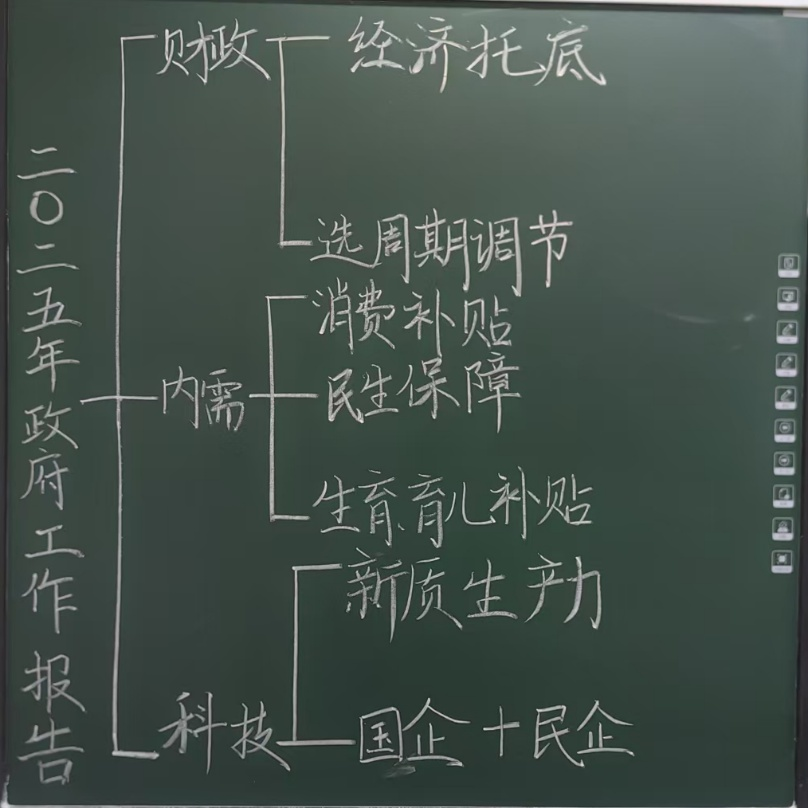 二〇二五年政府工作报告
财政
经济托底
选周期调节
内需
消费补贴
民生保障
生育、育儿补贴
科技
新质生产力
国企+民企